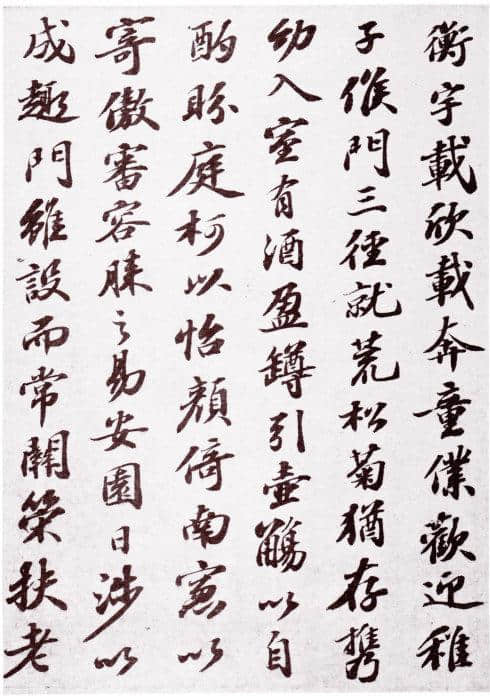 衡宇載欣載奔童僕歡迎稚
子候門三徑就荒松菊猶存携
幼入室有酒盈鐏引壺觴以自
酌眄庭柯以怡顏倚南窓以
寄傲審容膝之易安園日涉以
成趣門雖設而常關策扶老